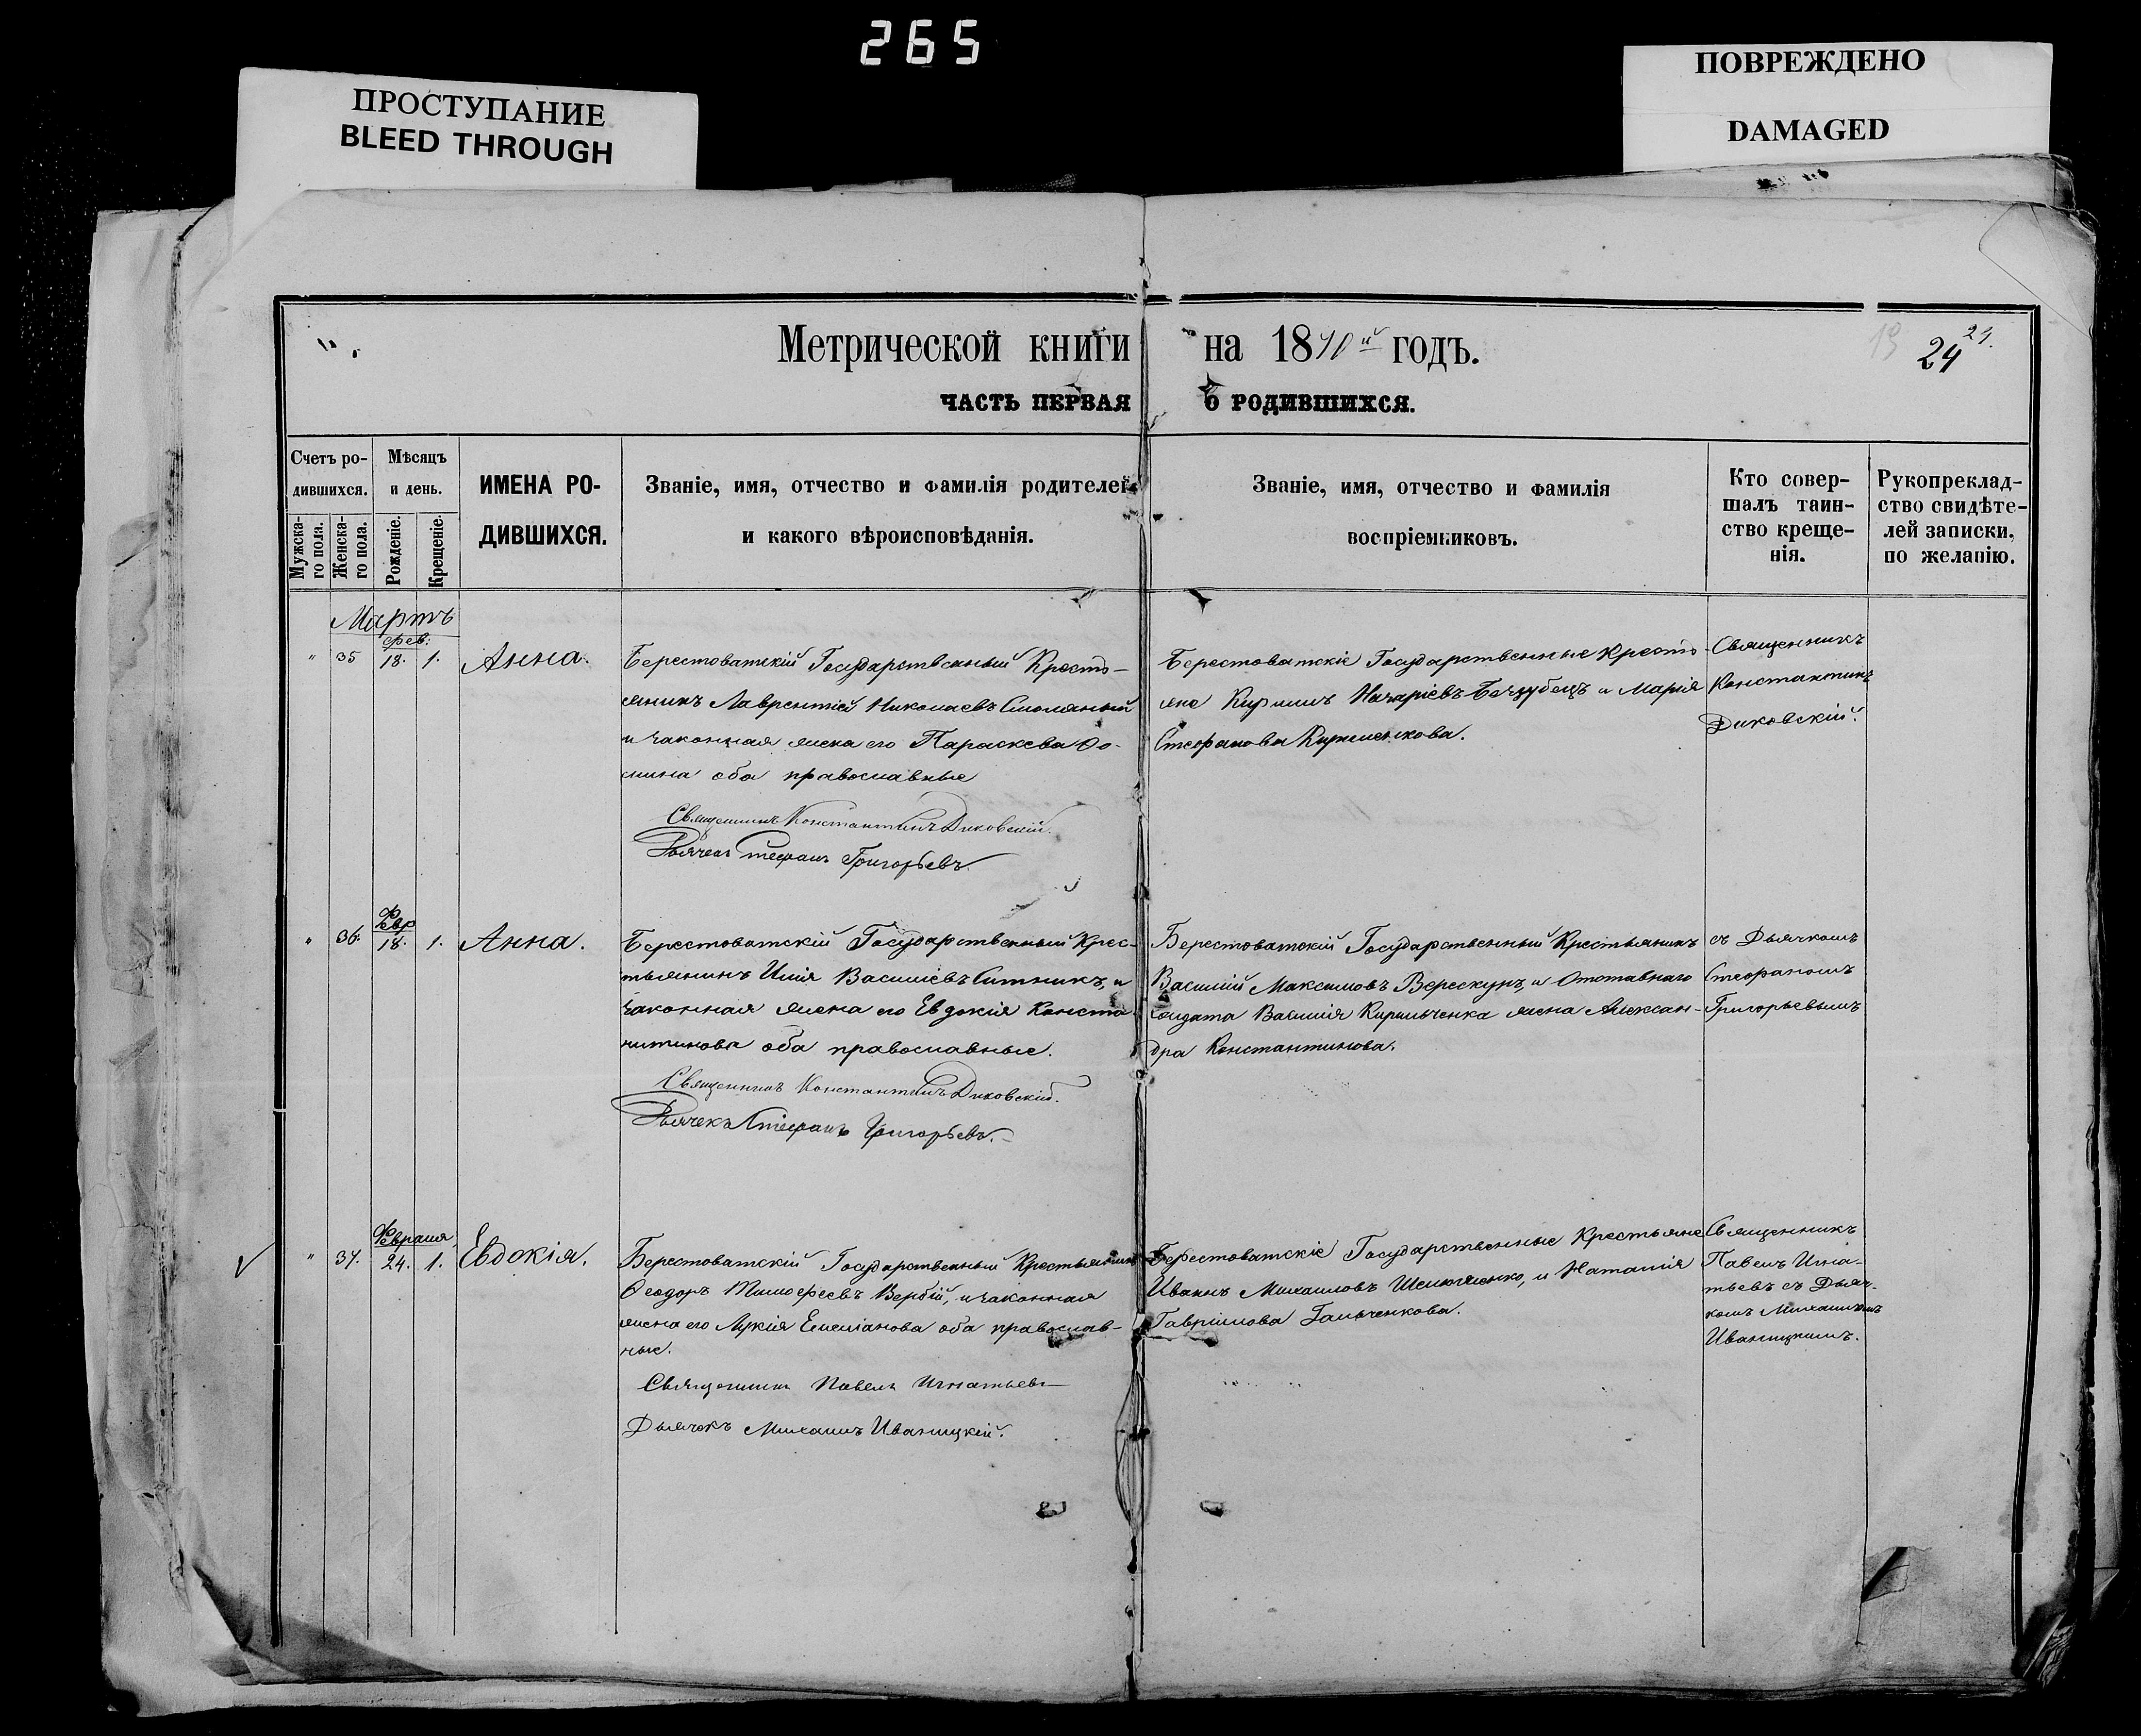 265
ПРОСТУПАНИЕ
BLEED THROUGH
ПОВРЕЖДЕНО
DAMAGED
Метрической книги на 1870й годъ.
24
21.
ЧАСТЬ ПЕРВАЯ О РОДИВШИХСЯ.
Счетъ ро-
дившихся.
Мужска-
го пола.
Женска-
го пола.
Мѣсяцъ
и день.
Рожденіе.
Крещеніе.
ИМЕНА РО-
ДИВШИХСЯ.
Званіе, имя, отчество и фамилія родителей
и какого вѣроисповѣданія.
Званіе, имя, отчество и фамилія
воспріемниковъ.
Кто совер-
шалъ таин-
ство креще-
нія.
Рукопреклад-
ство свидѣте-
лей записки,
по желанію.
Мартъ
фев:
" 35 18. 1. Анна.
Берестоватскій Государственный Кресть-
янинъ Лаврентій Николаевъ Смоляный
и законная жена его Параскева Ѳо-
мина оба православные
Священникъ Константинъ Диковскій.
Дьячекъ Стефанъ Григорьевъ.
Берестоватскіе Государственные Кресть-
яне Кирилъ Назаріевъ Беззубецъ и Марія
Стефанова
Священникъ
Константинъ
Диковскій.
Февр
" 36. 18. 1. Анна.
Берестоватскій Государственный Крес-
тьянинъ Илія Василіевъ Ситникъ, и
законная жена его Евдокія Конста-
нтинова оба православные.
Священникъ Константинъ Диковскій.
Дьячекъ Стефанъ Григорьевъ.
Берестоватскій Государственный Крестьянинъ
Василій Максимовъ Верескунъ, и Отставнаго
солдата Василія Кирильченка жена Алексан-
дра Константинова.
съ Дьячкомъ
Стефаномъ
Григорьевымъ
Февраля
" 37. 24. 1. Евдокія.
Берестоватскій Государственный Крестьянинъ
Ѳеодоръ Тимофеевъ Вербій, и законная
жена его Лукія Емеліанова оба православ-
ные.
Священникъ Павелъ Игнатьевъ
Дьячокъ Михаилъ Иваницкій.
Берестоватскіе Государственные Крестьяне
Иванъ Михаиловъ и Наталія
Гавріилова Гальченкова.
Священникъ
Павелъ Игна-
тьевъ съ Дьяч-
комъ Михаиломъ
Иваницкимъ.